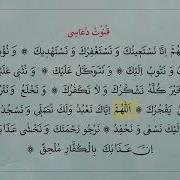 قنوت دعاسى
هم انا نستعينك ونستغفرك ونستهديك ۞ ونؤ
ونتوب اليك ۞ ونتوكل عليك ۞ ونثنى عليك
خير كله نشكرك ۞ ولا نكفرك ۞ ونخلع ونتر
يفجرك ۞ اللهم اياك نعبد ولك نصلى ونسجد
ليك نسعى ونحفد ۞ نرجو رحمتك ونخشى عذا
ان عذابك بالكفار ملحق ۞